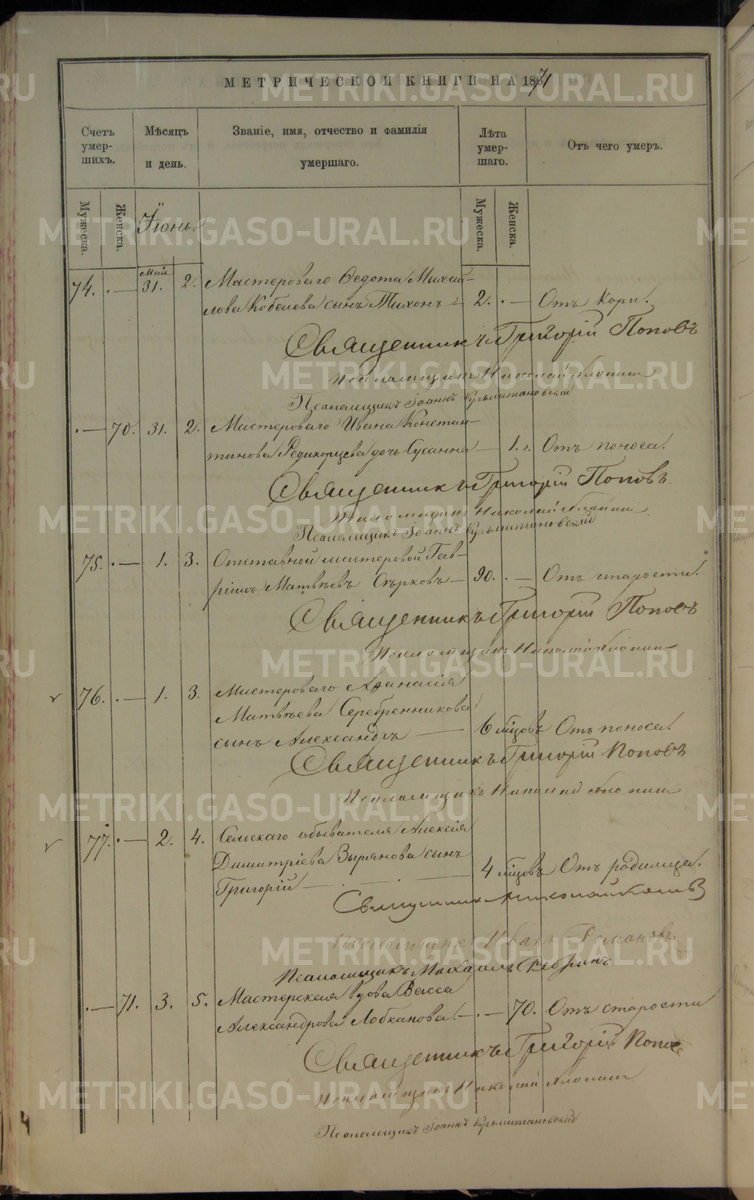 МЕТРИЧЕСКОЙ КНИГИ НА 1871
Счетъ умер-шихъ.
Мѣсяцъ и день.
Званіе, имя, отчество и фамилія умершаго.
Лѣта умер-шаго.
Отъ чего умеръ.
Мужеска.
Женска.
Мужеска.
Женска.
Іюнь.
Май
74. — 31. 2. Мастероваго Ѳедота Михай-
лова Кобелева сынъ Тихонъ — 2. — Отъ кори.
Священникъ Григорій Поповъ
Псаломщикъ Николай
Псаломщикъ Іоаннъ
— 70. 31. 2. Мастероваго Ивана Констан-
тинова Редикорцева дочь Сусанна — 1. Отъ поноса.
Священникъ Григорій Поповъ
Николай
Псаломщикъ Іоаннъ
75. — 1. 3. Отставной мастеровой Гав-
ріилъ Матвѣевъ — 90. — Отъ старости.
Священникъ Григорій Поповъ
Псаломщикъ Николай
76. — 1. 3. Мастероваго Аѳанасія
Матвѣева Серебренникова
сынъ Александръ — 6 мѣцовъ Отъ поноса.
Священникъ Григорій Поповъ
Псаломщикъ Николай
77. — 2. 4. Сельскаго обывателя Алексія
Димитріева Зырянова сынъ
Григорій — 4 мѣцовъ Отъ родимца.
Священникъ
Псаломщикъ Иванъ Романовъ
Псаломщикъ Михаилъ
— 71. 3. 5. Мастерская вдова Васса
Александрова Лобканова — 70. Отъ старости
Священникъ Григорій Поповъ
Псаломщикъ Николай
Псаломщикъ Іоаннъ
METRIKI.GASO-URAL.RU